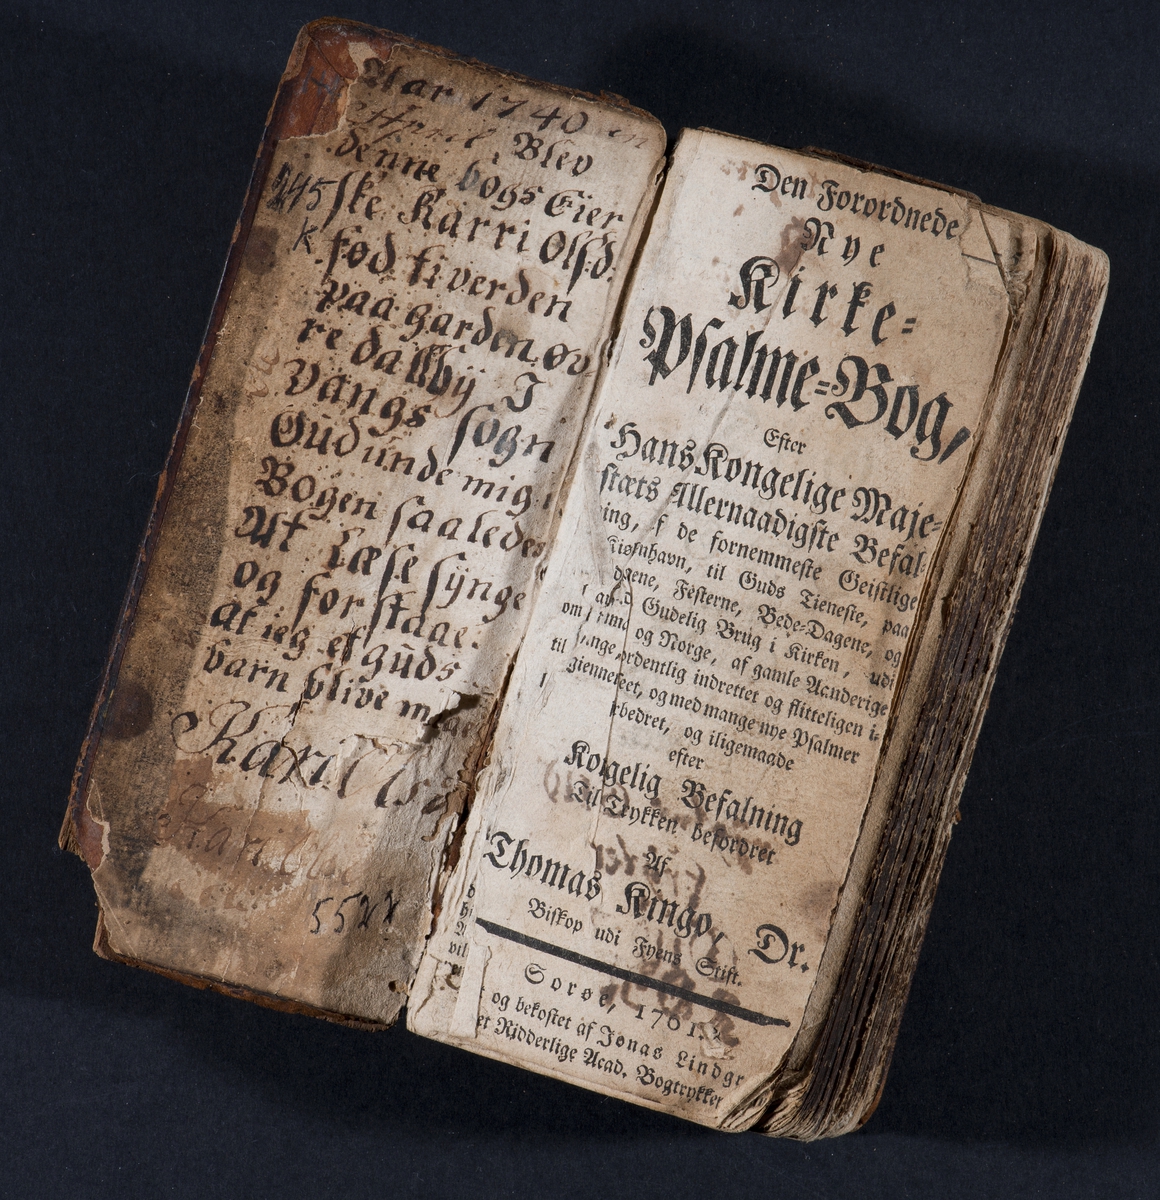 Aar 1740 en
April Blev
denne bogs Eier
ske Karri Olsd:
fød ti verden
paa garden øv
re dalbÿ I
Vangs sogn
Gud ünde mig
Bogen saaledes
At Læse sÿnge
og forstaae:
at ieg et güds
barn blive maa
Kari Olsd
245
K
5522
Den Forordnede
Nye
Kirke=
Psalme=Bog,
Efter
Hans Kongelige Maje-
stæts Allernaadigste Befal-
ning, af de fornemmeste Geistlige
Kiøfnhavn, til Guds Tieneste, paa
dagene, Festerne, Bede-Dagene, og
Gudelig Brug i Kirken, udi
og Norge, af gamle Aanderige
Sange, ordentlig indrettet og flitteligen i-
giennemseet, og med mange nye Psalmer
forbedret, og iligemaade
efter
Kongelig Befalning
Til Trykken befordret
Af
Thomas Kingo, Dr.
Biskop udi Fyens Stift.
Sorøe, 1761.
og bekostet af Jonas Lindgr
et Ridderlige Acad. Bogtrykker